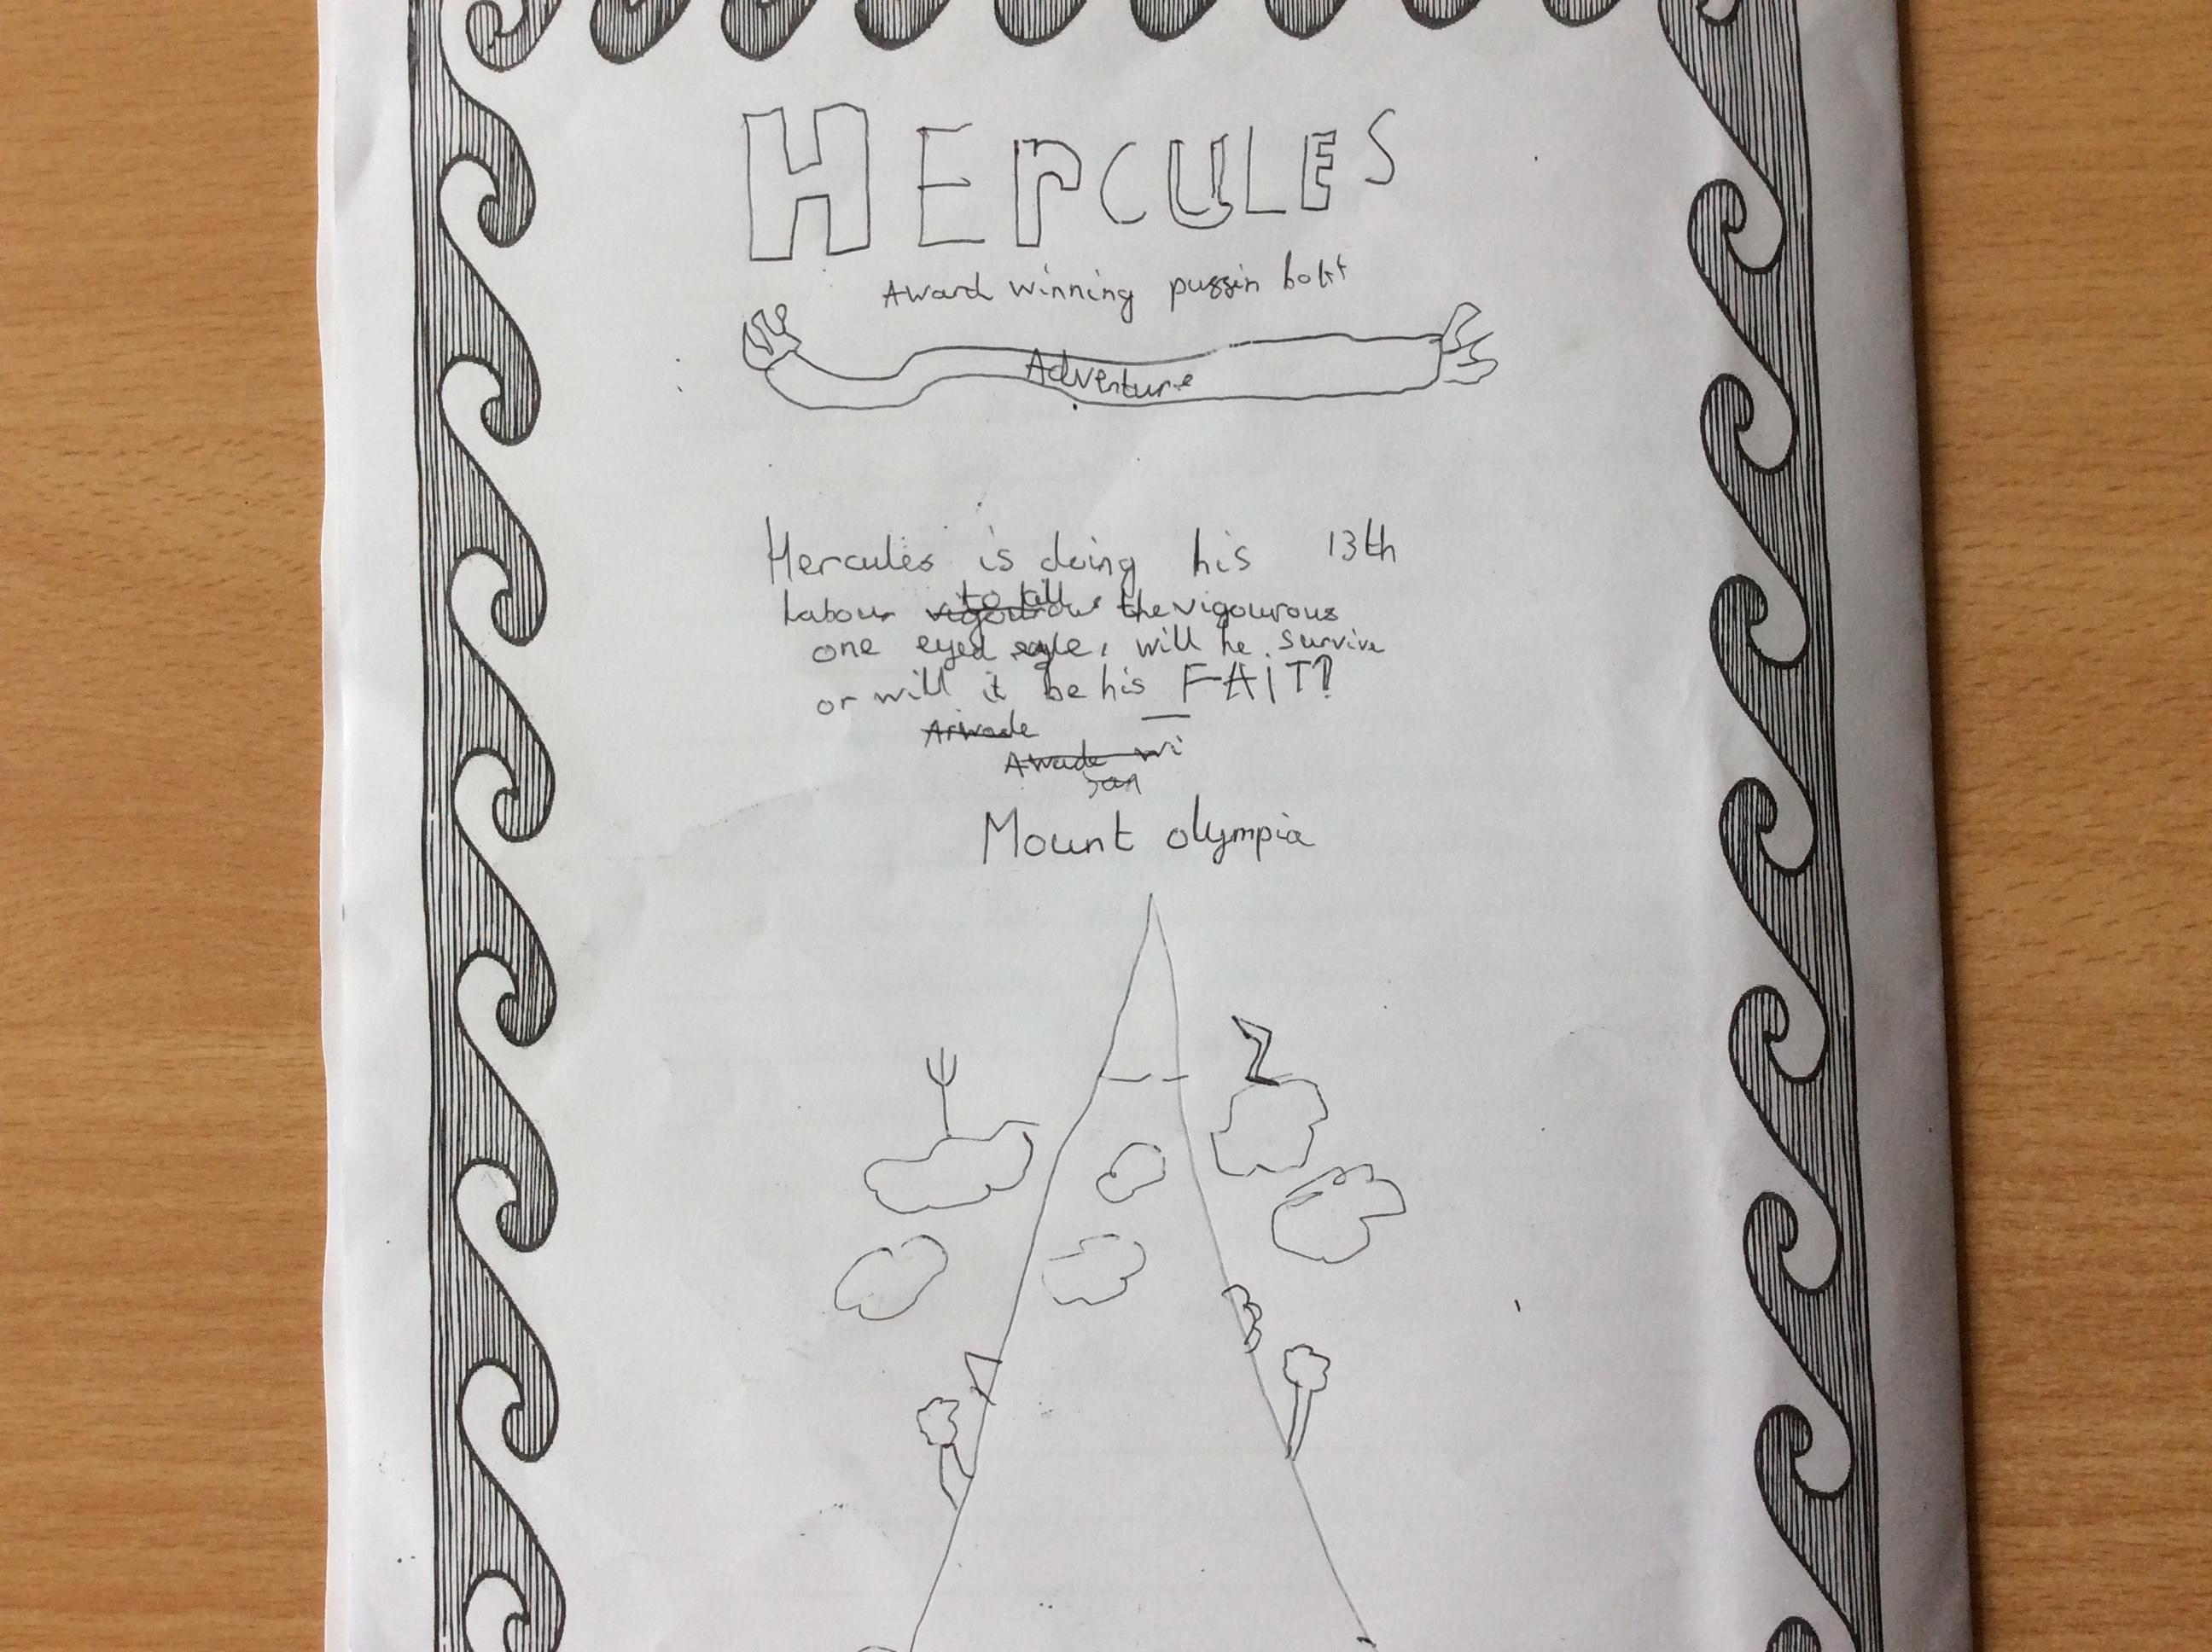 HErCULES
Award winning
Adventure
Hercules is doing his 13th
labour to kill the vigourous
one eyed egle, will he survive
or will it be his FAIT?
Arwade
Awade wi
Mount olympia